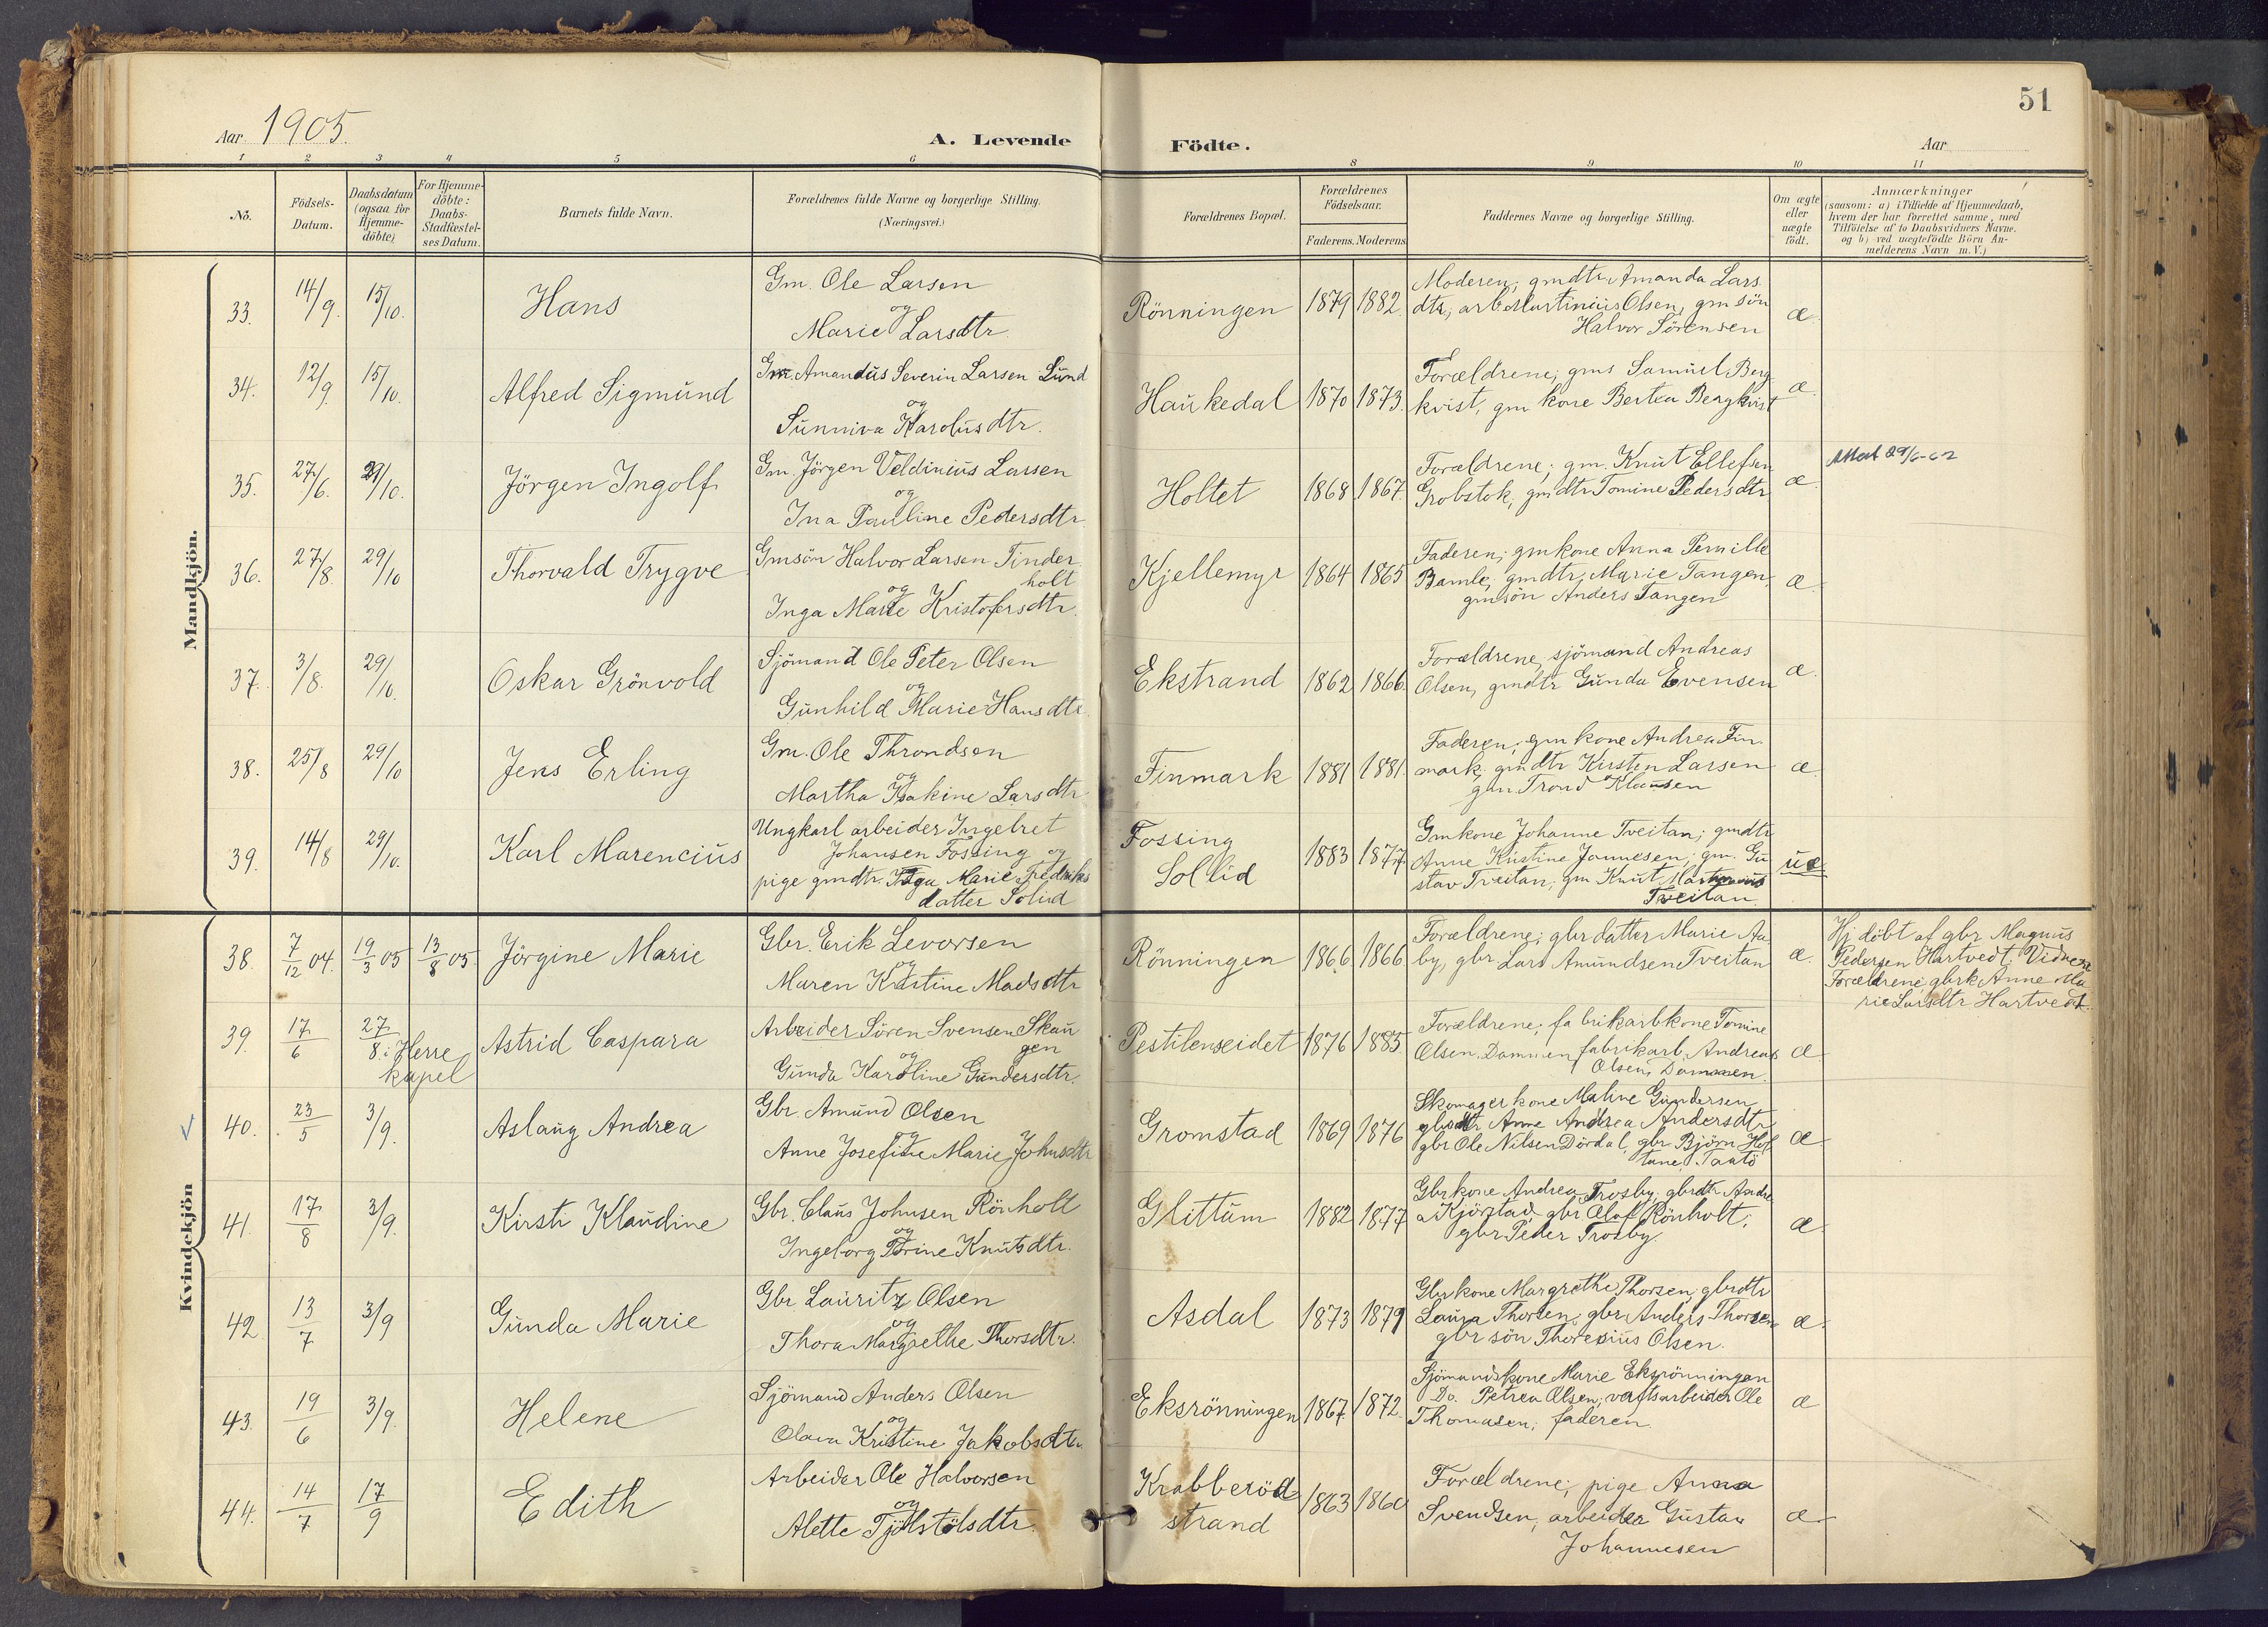 51
Aar 1905.
A. Levende Födte.
Aar
1 2 3 4 5 6 8 9 10 11
No.
Födsels-Datum.
Daabsdatum (ogsaa for Hjemme-döbte)
For Hjemme-döbte: Daabs-Stadfæstel-ses Datum.
Barnets fulde Navn.
Forældrenes fulde Navne og borgerlige Stilling. (Næringsvei.)
Forældrenes Bopæl.
Forældrenes Födselsaar.
Faderens. Moderens
Faddernes Navne og borgerlige Stilling.
Om ægte eller uægte födt.
Anmærkninger
(saasom: a) i Tilfælde af Hjemmedaab,
hvem der har forrettet samme, med
Tilföielse af to Daabsvidners Navne.
og b) ved uægtefödte Börn An-
melderens Navn m. V.)
Mandkjön.
33. 14/9. 15/10. Hans
Gm. Ole Larsen
og
Marie Larsdtr.
Rönningen 1879 1882
Moderen, gmdtr. Amanda Lars
dtr, arb. Martinius Olsen, gm sön
Halvor Sörensen
æ.
34. 12/9 15/10. Alfred Sigmund
Gm. Amandus Severin Larsen Lund
og
Sunniva Karolusdtr.
Haukedal 1870 1873.
Forældrene; gms Samuel Berg
kvist, gm kone Bertea Bergkvist
æ
35. 27/6. 29/10. Jörgen Ingolf
Gm. Jörgen Veldinius Larsen
og
Ina Pauline Pedersdtr.
Holtet 1868 1867.
Forældrene; gm. Knut Ellefsen
Grobstok, gmdtr Tomine Pedersdtr
æ.
Attest 29/6-62
36. 27/8. 29/10 Thorvald Trygve
Gmsön Halvor Larsen Tinder
holt
og
Inga Marie Kristofersdtr.
Kjellemyr 1864 1865
Faderen; gmkone Anna Pernille
Bamle, gmdtr, Marie Tangen,
gmsön Anders Tangen
æ.
37. 3/8. 29/10. Oskar Grönvold
Sjömand Ole Peter Olsen
og
Gunhild Marie Hansdtr.
Ekstrand 1862 1866.
Forældrene, sjömand Andreas
Olsen, gmdtr Gunda Evensen
æ.
38. 25/8 29/10 Jens Erling
Gm. Ole Throndsen
og
Martha Isakine Larsdtr
Finmark 1881 1881.
Faderen; gm kone Andrea Fin
mark, gmdtr Kirsten Larsen
gm. Trond Klausen
æ.
39. 14/8 29/10. Karl Marencius
Ungkarl arbeider Ingebret
Johansen Fossing og
pige gmdtr. Inga Marie Fredriks
datter Solid
Fossing
Sollid
1883 1877.
Gmkone Johanne Tveitan; gmdtr
Anne Kristine Jonnesen; gm. Gu
stav Tveitan, gm Knut Martinius
Tveitan.
uæ
Kvindekjön
38. 7/12 04. 19/3 05 13/8 05. Jörgine Marie
Gbr. Erik Levorsen
og
Maren Kristine Madsdtr
Rönningen 1866 1866
Forældrene; gbr datter Marie Aa
by, gbr Lars Amundsen Tveitan
æ.
Hj döbt af gbr Magnus
Pedersen Hartvedt. Vidnene
Forældrene, gbrk Anne Ma
rie Larsdtr Hartvedt.
39. 17/6 27/8. i Herre
kapel
Astrid Caspara
Arbeider Sören Svensen Skau
gen
og
Gunda Karoline Gundersdtr.
Pestilenseidet 1876 1885.
Forældrene; fabrikarbkone Tomine
Olsen, Dammen, fabrikarb. Andreas
Olsen, Dammen.
æ
40. 23/5 3/9. Aslaug Andrea
Gbr. Amund Olsen
og
Anne Josefine Marie Johnsdtr
Gromstad 1869 1876
Skomager kone Maline Gundersen
gbrdtr Anne Andrea Andersdtr
gbr Ole Nilsen Dördal, gbr Björn Hof
tune, Taatö
æ
41. 17/8 3/9. Kirsti Klaudine
Gbr. Claus Johnsen Rönholt
og
Ingeborg Trine Knutsdtr.
Glittum 1882 1877
Gbrkone Andrea Trosby, gbrdtr Andre
a Kjörstad, gbr Olof Rönholt;
gbr Peder Trosby.
æ.
42. 13/7 3/9 Gunda Marie
Gbr. Lauritz Olsen
og
Thora Margrethe Thorsdtr.
Asdal 1873 1879
Gbrkone Margrethe Thorsen, gbrdtr
Laura Thorsen, gbr Anders Thorsen
gbr sön Thoresius Olsen.
æ.
43. 19/6 3/9. Helene
Sjömand Anders Olsen
og
Olava Kristine Jakobsdtr.
Eksrönningen 1867. 1872.
Sjömandskone Marie Eksrönningen
Do. Petrea Olsen, verftsarbeider Ole
Thomasen; faderen.
æ
44. 14/7 17/9 Edith
Arbeider Ole Halvorsen
og
Alette Tjöstölsdtr.
Krabberöd
strand
1863 1860
Forældrene; pige Anna
Svendsen, arbeider Gustav
Johannesen
æ